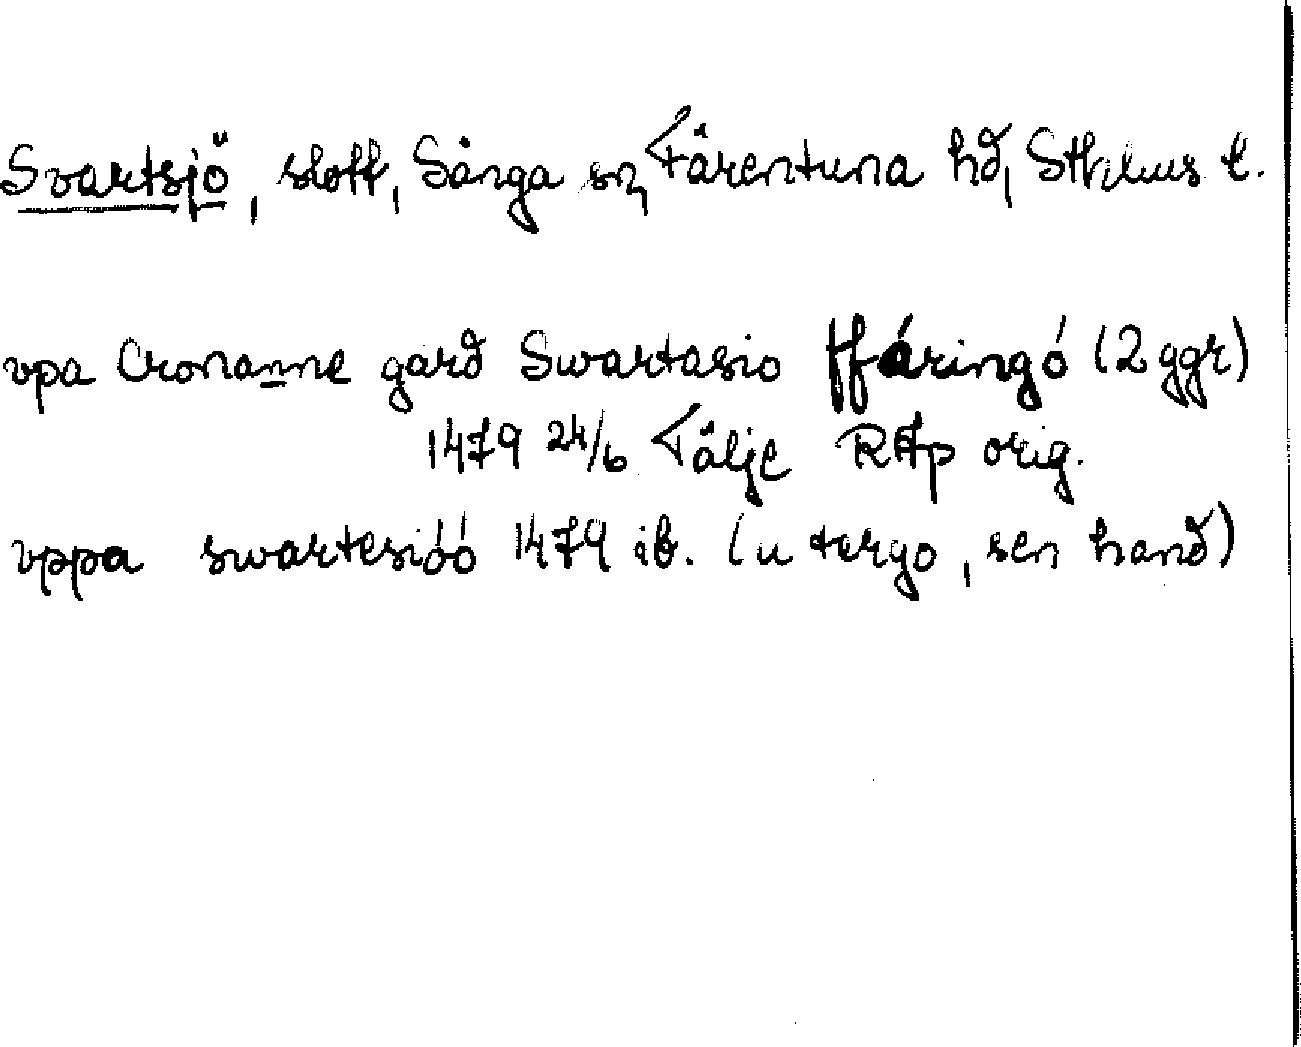 Svartsjö, slott, Sånga sn, Färentuna hd, Sthlms l.
vpa Cronanne gard Swartasio ffáringó (2 ggr)
1479 24/6 Tälje RAp orig.
vppa swartesióó 1479 ib. (a tergo, sen hand)